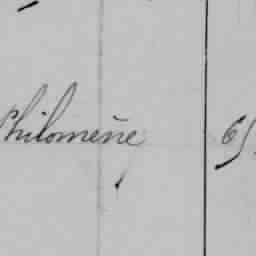 Philomène 65